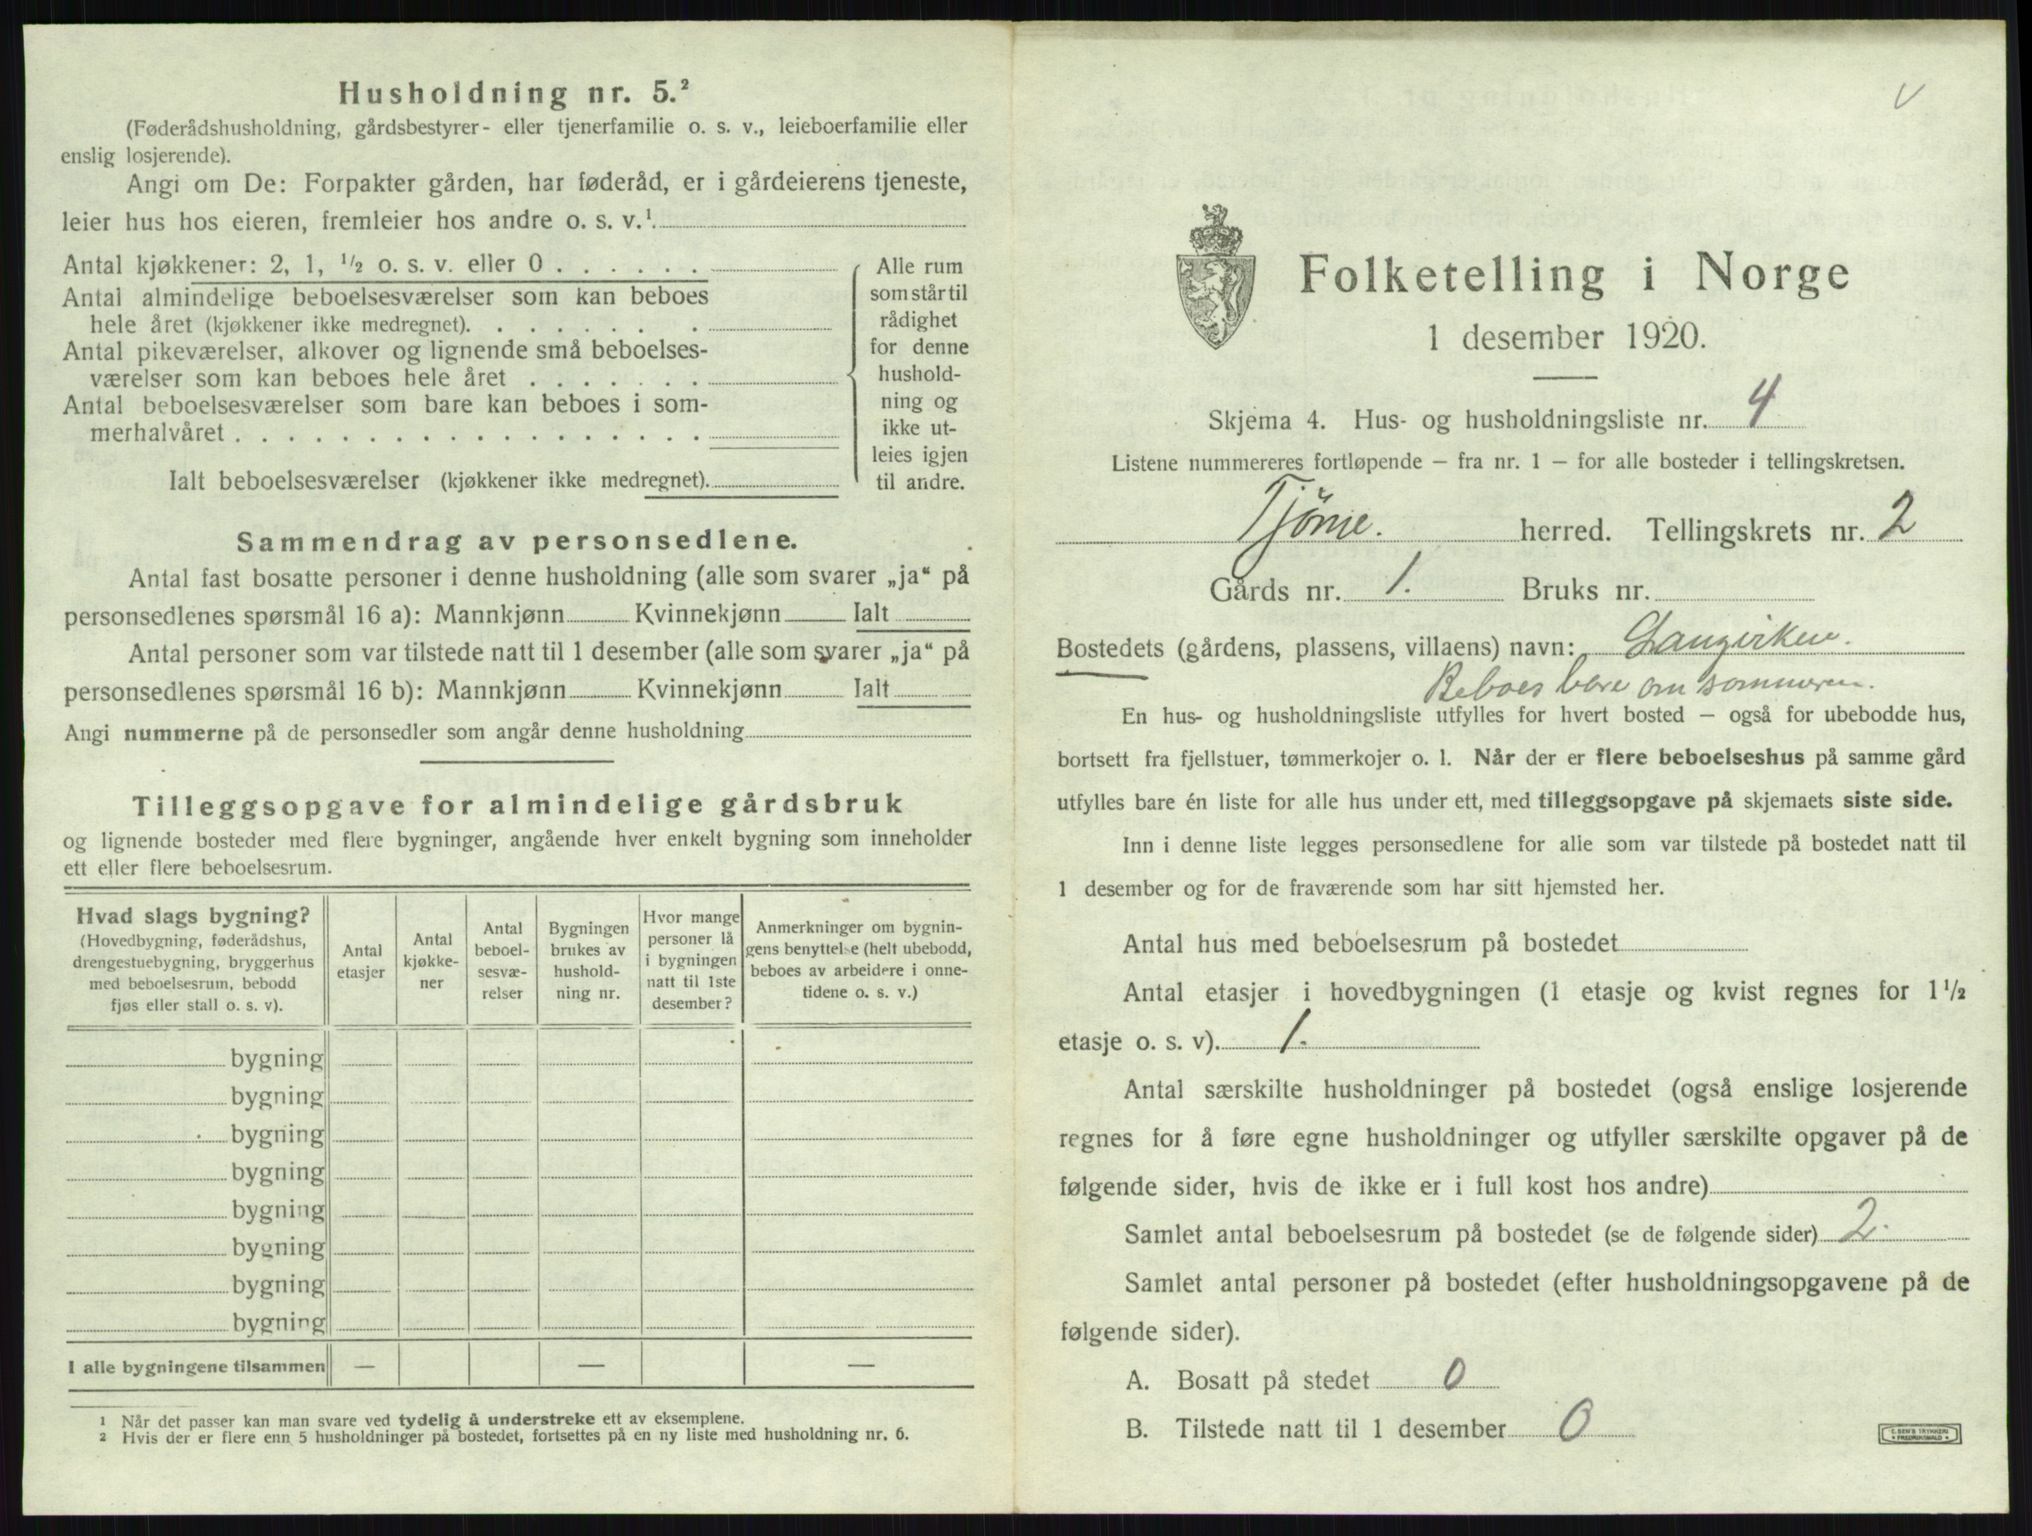 Husholdning nr. 5.²
(Føderådshusholdning, gårdsbestyrer- eller tjenerfamilie o. s. v., leieboerfamilie eller
enslig losjerende).
Angi om De: Forpakter gården, har føderåd, er i gårdeierens tjeneste,
leier hus hos eieren, fremleier hos andre o. s. v.¹
Antal kjøkkener: 2, 1, ½ o. s. v. eller 0 . . . . . .
Antal almindelige beboelsesværelser som kan beboes
hele året (kjøkkener ikke medregnet). . . . . . . .
Antal pikeværelser, alkover og lignende små beboelses-
værelser som kan beboes hele året . . . . . . .
Antal beboelsesværelser som bare kan beboes i som-
merhalvåret . . . . . . . . . . . . . . . . . .
Ialt beboelsesværelser (kjøkkener ikke medregnet).
Alle rum
som står til
rådighet
for denne
hushold-
ning og
ikke ut-
leies igjen
til andre.
Sammendrag av personsedlene.
Antal fast bosatte personer i denne husholdning (alle som svarer „ja“ på
personsedlenes spørsmål 16 a): Mannkjønn Kvinnekjønn Ialt
Antal personer som var tilstede natt til 1 desember (alle som svarer „ja“ på
personsedlenes spørsmål 16 b): Mannkjønn Kvinnekjønn Ialt
Angi nummerne på de personsedler som angår denne husholdning
Tilleggsopgave for almindelige gårdsbruk
og lignende bosteder med flere bygninger, angående hver enkelt bygning som inneholder
ett eller flere beboelsesrum.
Hvad slags bygning?
(Hovedbygning, føderådshus,
drengestuebygning, bryggerhus
med beboelsesrum, bebodd
fjøs eller stall o. s. v).
Antal
etasjer
Antal
kjøkke-
ner
Antal
beboel-
sesvæ-
relser
Bygningen
brukes av
hushold-
ning nr.
Hvor mange
personer lå
i bygningen
natt til 1ste
desember?
Anmerkninger om bygnin-
gens benyttelse (helt ubebodd,
beboes av arbeidere i onne-
tidene o. s. v.)
bygning
bygning
bygning
bygning
bygning
bygning
bygning
bygning
I alle bygningene tilsammen — — —
¹ Når det passer kan man svare ved tydelig å understreke ett av eksemplene.
² Hvis der er flere enn 5 husholdninger på bostedet, fortsettes på en ny liste med husholdning nr. 6.
Folketelling i Norge
1 desember 1920.
Skjema 4. Hus- og husholdningsliste nr. 4
Listene nummereres fortløpende – fra nr. 1 – for alle bosteder i tellingskretsen.
Tjøme. herred. Tellingskrets nr. 2
Gårds nr. 1. Bruks nr.
Bostedets (gårdens, plassens, villaens) navn: Langviken.
Beboes bare om sommeren.
En hus- og husholdningsliste utfylles for hvert bosted – også for ubebodde hus,
bortsett fra fjellstuer, tømmerkojer o. l. Når der er flere beboelseshus på samme gård
utfylles bare én liste for alle hus under ett, med tilleggsopgave på skjemaets siste side.
Inn i denne liste legges personsedlene for alle som var tilstede på bostedet natt til
1 desember og for de fraværende som har sitt hjemsted her.
Antal hus med beboelsesrum på bostedet
Antal etasjer i hovedbygningen (1 etasje og kvist regnes for 1½
etasje o. s. v). 1.
Antal særskilte husholdninger på bostedet (også enslige losjerende
regnes for å føre egne husholdninger og utfyller særskilte opgaver på de
følgende sider, hvis de ikke er i full kost hos andre)
Samlet antal beboelsesrum på bostedet (se de følgende sider) 2.
Samlet antal personer på bostedet (efter husholdningsopgavene på de
følgende sider).
A. Bosatt på stedet 0
B. Tilstede natt til 1 desember 0